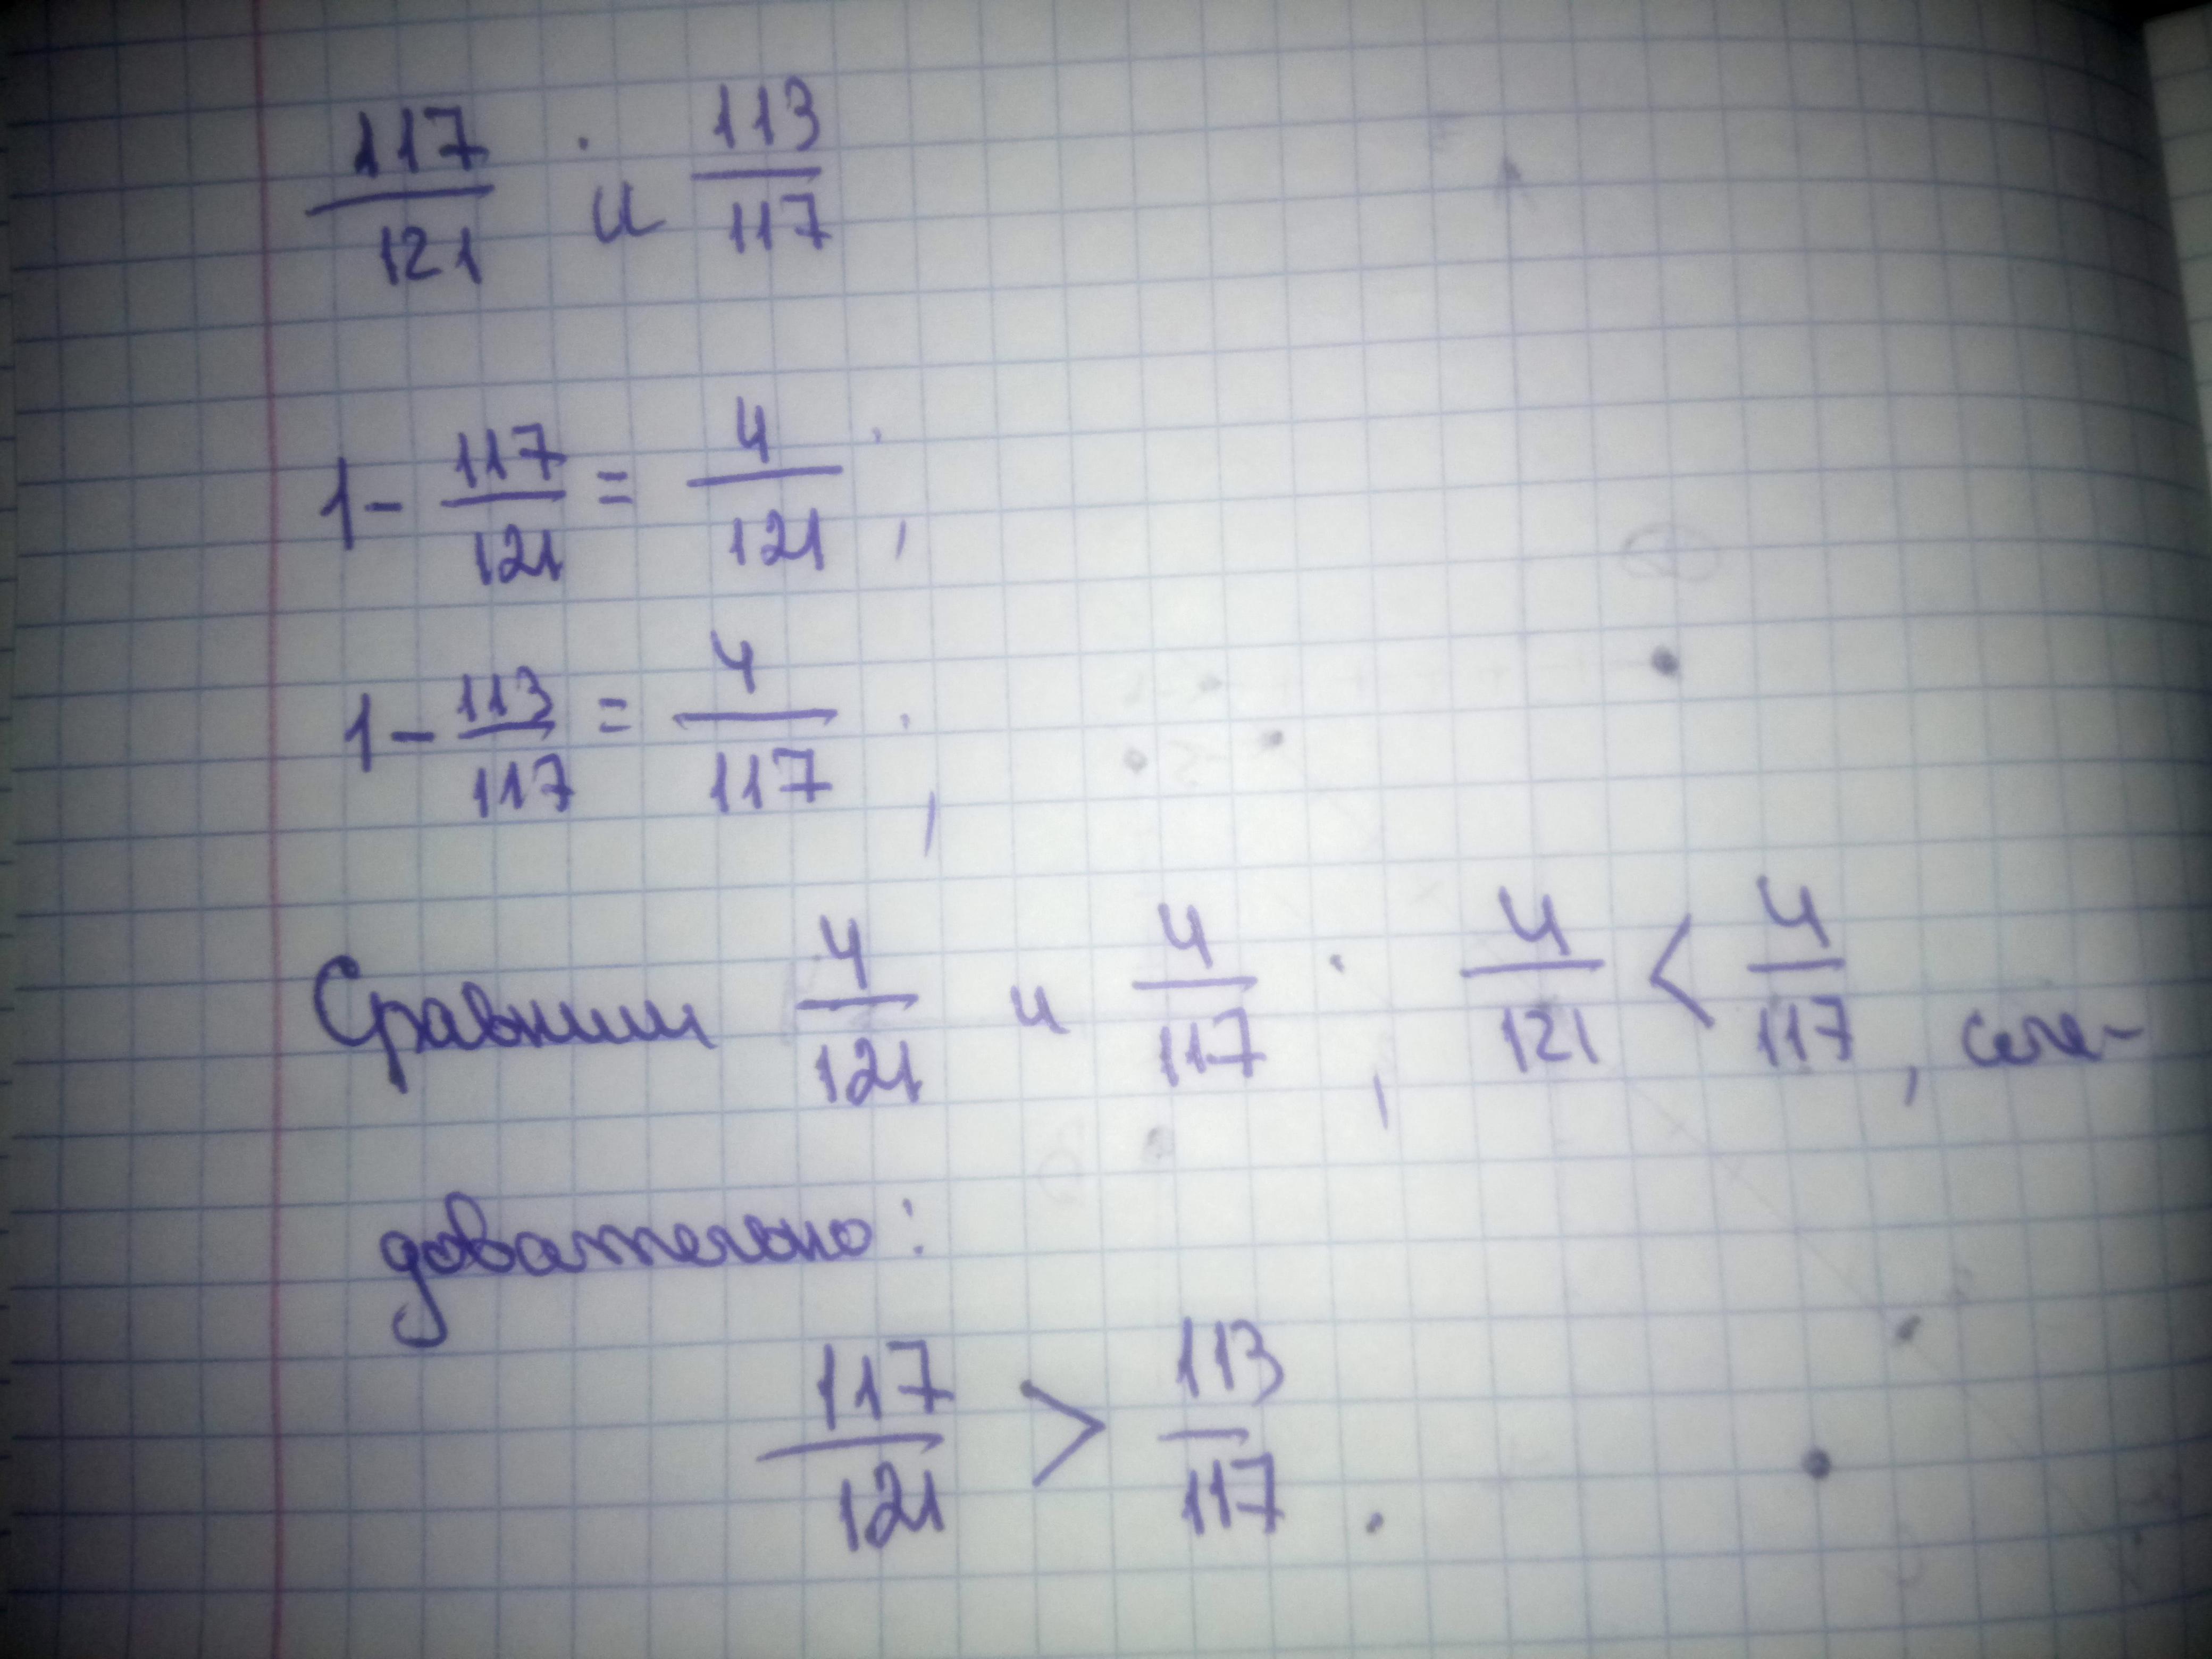 117/121 и 113/117
1 - 117/121 = 4/121;
1 - 113/117 = 4/117;
Сравним 4/121 и 4/117; 4/121 < 4/117, сле-
довательно:
117/121 > 113/117.